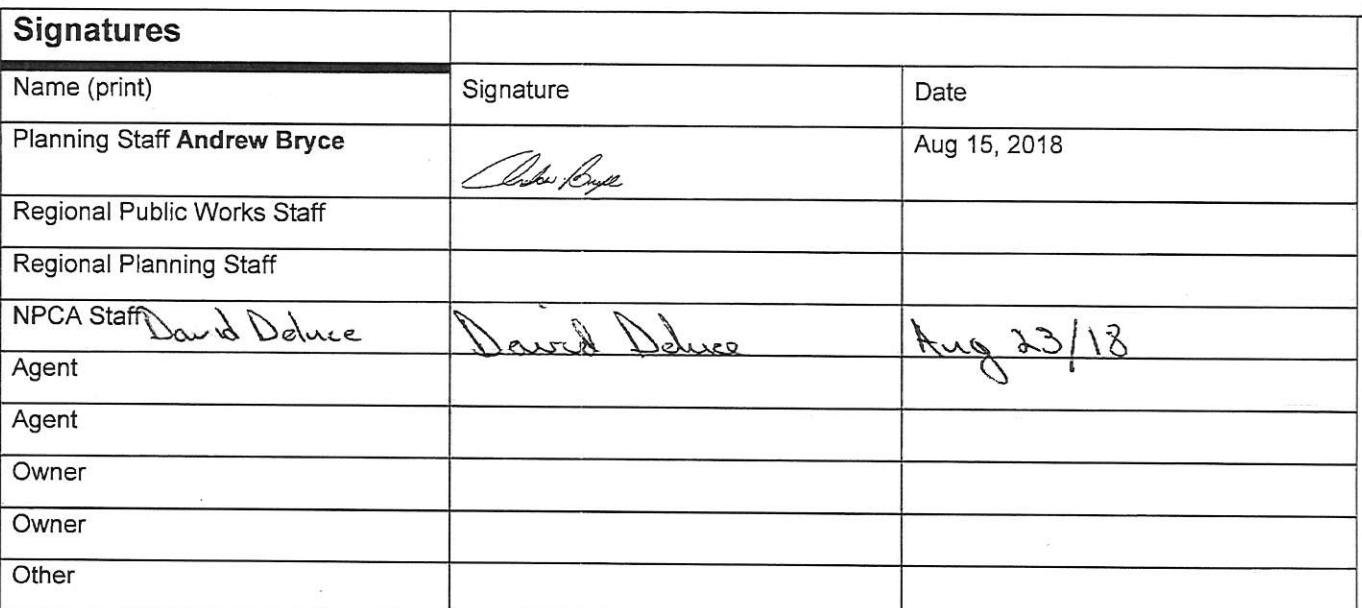 Signatures
Name (print) Signature Date
Planning Staff Andrew Bryce Andrew Bryce Aug 15, 2018
Regional Public Works Staff
Regional Planning Staff
NPCA Staff David Deluce David Deluce Aug 23/18
Agent
Agent
Owner
Owner
Other